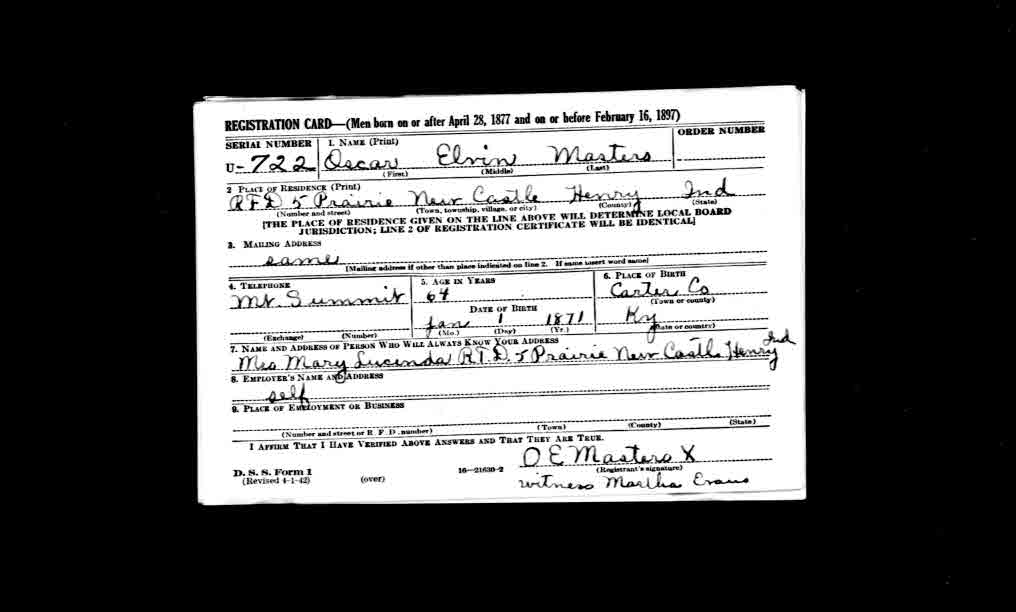 REGISTRATION CARD—(Men born on or after April 28, 1877 and on or before February 16, 1897)
SERIAL NUMBER 1. NAME (Print) ORDER NUMBER
U-722 Oscar Elvin Masters
(First) (Middle) (Last)
2 PLACE OF RESIDENCE (Print)
RFD 5 Prairie New Castle Henry Ind
(Number and street) (Town, township, village, or city) (County) (State)
[THE PLACE OF RESIDENCE GIVEN ON THE LINE ABOVE WILL DETERMINE LOCAL BOARD
JURISDICTION; LINE 2 OF REGISTRATION CERTIFICATE WILL BE IDENTICAL]
3. MAILING ADDRESS
same
[Mailing address if other than place indicated on line 2. If same insert word same]
4. TELEPHONE 5. AGE IN YEARS 6. PLACE OF BIRTH
Mt. Summit 64 Carter Co
(Town or county)
DATE OF BIRTH
Jan 1 1871 Ky
(Exchange) (Number) (Mo.) (Day) (Yr.) (State or country)
7. NAME AND ADDRESS OF PERSON WHO WILL ALWAYS KNOW YOUR ADDRESS
Mrs. Mary Lucinda R.F.D. 5 Prairie New Castle Henry Ind
8. EMPLOYER'S NAME AND ADDRESS
self
9. PLACE OF EMPLOYMENT OR BUSINESS
(Number and street or R. F. D. number) (Town) (County) (State)
I AFFIRM THAT I HAVE VERIFIED ABOVE ANSWERS AND THAT THEY ARE TRUE.
O E Masters X
D. S. S. Form 1 16—21630-2 (Registrant's signature)
(Revised 4-1-42) (over) witness Martha Evans